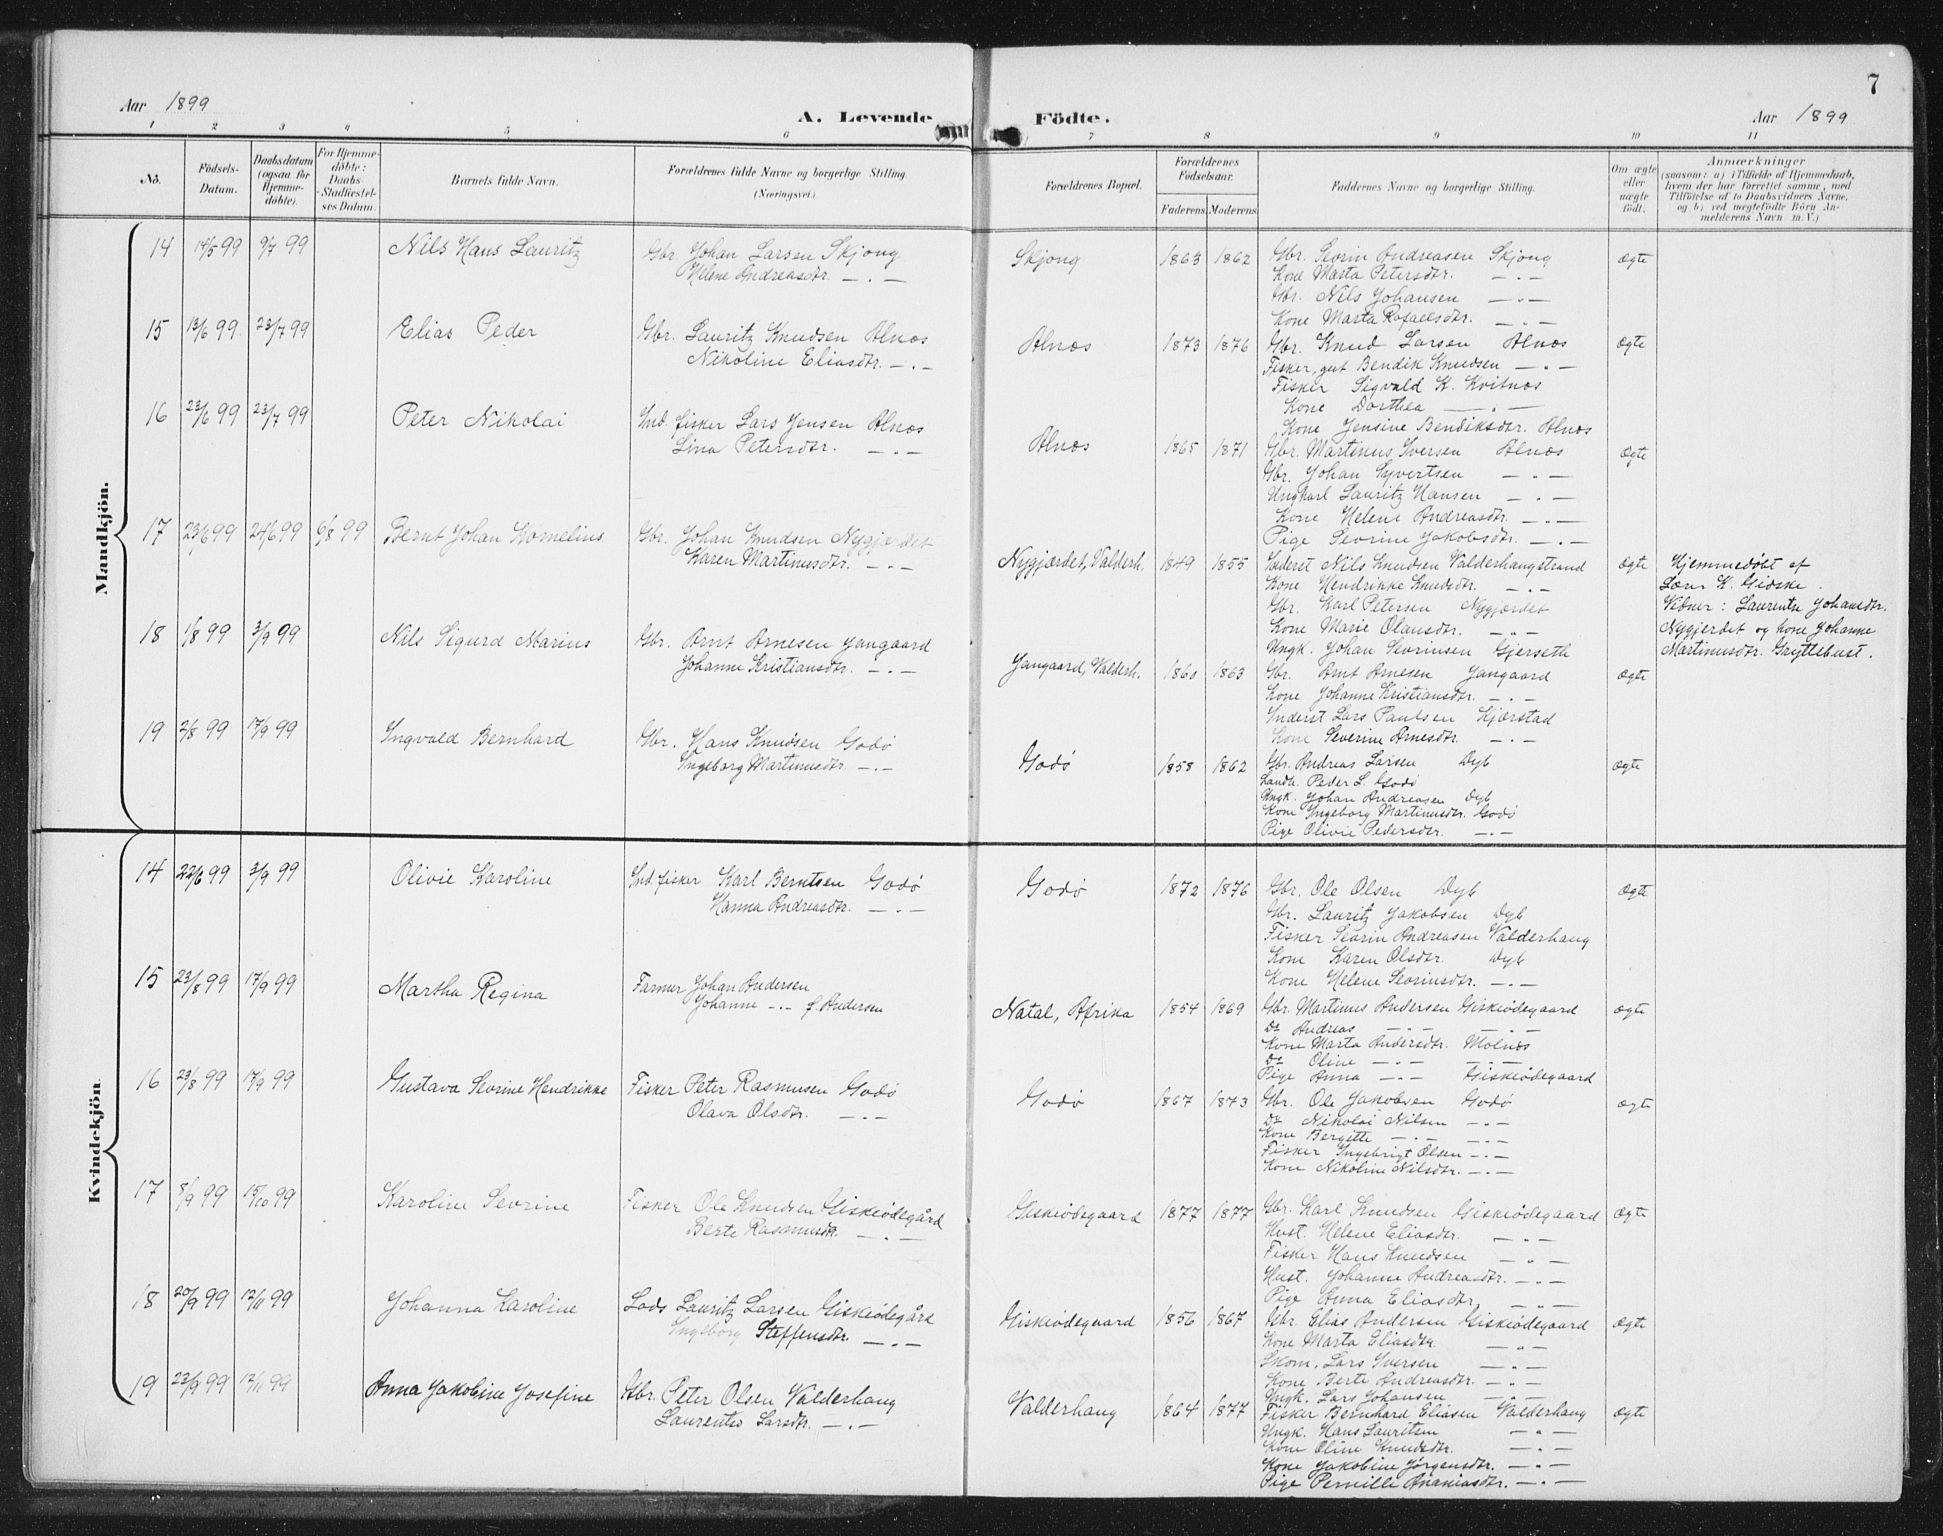 7
Aar 1899
A. Levende Födte.
Aar 1899
1 2 3 4 5 6 7 8 9 10 11
No.
Födsels-Datum.
Daabsdatum (ogsaa for Hjemme-döbte).
For Hjemme-döbte: Daabs-Stadfæstel-ses Datum.
Barnets fulde Navn.
Forældrenes fulde Navne og borgerlige Stilling.
(Næringsvei.)
Forældrenes Bopæl.
Forældrenes Födselsaar.
Faderens. Moderens.
Faddernes Navne og borgerlige Stilling.
Om ægte eller uægte födt.
Anmærkninger
(saasom: a) i Tilfælde af Hjemmedaab,
hvem der har forrettet samme, med
Tilföielse af to Daabsvidners Navne,
og b) ved uægtefödte Börn An-
melderens Navn m. V.)
Mandkjön.
14 14/5 99 9/7 99 Nils Hans Lauritz Gbr. Johan Larsen Skjong
Helene Andreasdtr. — . —
Skjong 1863 1862 Gbr. Sevrin Andreasen Skjong ægte
Kone Marta Petersdtr. — . —
Gbr. Nils Johansen — . —
Kone Marta Rafaelsdtr. — . —
15 13/6 99 23/7 99 Elias Peder Gbr. Lauritz Knudsen Alnæs
Nikoline Eliasdtr. — . —
Alnæs 1873 1876 Gbr. Knud Larsen Alnæs ægte
Fisker, gut Bendik Knudsen — . —
Fisker Sigvald K. Kvitnæs
Kone Dorthea — . —
Kone Jensine Bendiksdtr. Alnæs
16 23/6 99 23/7 99 Peter Nikolai Ind. fisker Lars Jensen Alnæs
Lina Petersdtr. — . —
Alnæs 1865 1871 Gbr. Martinus Iversen Alnæs ægte
Gbr. Johan Syvertsen — . —
Ungkarl Lauritz Hansen — . —
Kone Helene Andreasdtr. — . —
Pige Sevrine Jakobsdtr. — . —
17 23/6 99 24/6 99 6/8 99 Bernt Johan Kornelius Gbr. Johan Knudsen Nygjærdet
Karen Martinusdtr. — . —
Nygjærdet, Valderh. 1849 1855 Inderst Nils Knudsen Valderhaugstrand ægte
Kone Hendrikke Knudsdtr. — . —
Gbr. Karl Petersen Nygjærdet
Kone Marie Olausdtr. — . —
Ungk. Johan Sevrinsen Gjerseth
Hjemmedøbt af
Lars K. Gidske.
Vidner: Laurentse Johansdtr.
Nygjerdet og kone Johanne
Martinusdtr. Gryttebust.
18 1/8 99 3/9 99 Nils Sigurd Marius Gbr. Arnt Arnesen Jangaard
Johanne Kristiansdtr. — . —
Jangaard, Valderh. 1860 1863 Gbr. Arnt Arnesen Jangaard ægte
Kone Johanne Kristiansdtr. — . —
Inderst Lars Paulsen Kjærstad
Kone Severine Arnesdtr. — . —
19 2/8 99 17/9 99 Ingvald Bernhard Gbr. Hans Knudsen Godø
Ingeborg Martinusdtr. — . —
Godø 1858 1862 Gbr. Andreas Larsen Dyb ægte
Landh. Peder L. Godø
Ungk. Johan Andreasen Dyb
Kone Ingeborg Martinusdtr. Godø
Pige Olivie Pedersdtr. — . —
Kvindekjön.
14 22/6 99 3/9 99 Olivie Karoline Ind. fisker Karl Berntsen Godø
Hanna Andreasdtr. — . —
Godø 1872 1876 Gbr. Ole Olsen Dyb ægte
Gbr. Lauritz Jakobsen Dyb
Fisker Sevrin Andreasen Valderhaug
Kone Karen Olsdtr. Dyb
Kone Helene Sevrinsdtr. — . —
15 23/8 99 17/9 99 Martha Regina Farmer Johan Andersen
Johanne — . — f. Andersen
Natal, Afrika 1854 1869 Gbr. Martinus Andersen Giskeødegaard ægte
Do Andreas — . — — . —
Kone Marta Andersdtr. Molnæs
Do Oline — . — — . —
Pige Anna — . — Giskeødegaard
16 23/8 99 17/9 99 Gustava Sevrine Hendrikke Fisker Peter Rasmusen Godø
Olava Olsdtr. — . —
Godø 1867 1873 Gbr. Ole Jakobsen Godø ægte
Do Nikolai Nilsen — . —
Kone Bergitte — . — — . —
Fisker Ingebrigt Olsen — . —
Kone Nikoline Nilsdtr. — . —
17 8/9 99 15/10 99 Karoline Sevrine Fisker Ole Knudsen Giskeødegård
Berte Rasmusdtr. — . —
Giskeødegaard 1877 1877 Gbr. Karl Knudsen Giskeødegaard ægte
Hust. Helene Eliasdtr. — . —
Fisker Hans Knudsen — . —
Hust. Johanne Andreasdtr. — . —
Pige Anna Eliasdtr. — . —
18 20/9 99 12/11 99 Johanna Karoline Lods Lauritz Larsen Giskeødegård
Ingeborg Steffensdtr. — . —
Giskeødegaard 1856 1867 Gbr. Elias Andersen Giskeødegaard ægte
Kone Marta Eliasdtr. — . —
Skom. Lars Iversen — . —
Kone Berte Andreasdtr. — . —
Ungk. Lars Johansen — . —
19 23/9 99 12/11 99 Anna Jakobine Josefine Gbr. Peter Olsen Valderhaug
Laurentse Larsdtr. — . —
Valderhaug 1864 1877 Fisker Bernhard Eliasen Valderhaug ægte
Ungk. Hans Lauritsen — . —
Kone Oline Knudsdtr. — . —
Kone Jakobine Jørgensdtr. — . —
Pige Pernille Ananiasdtr. — . —